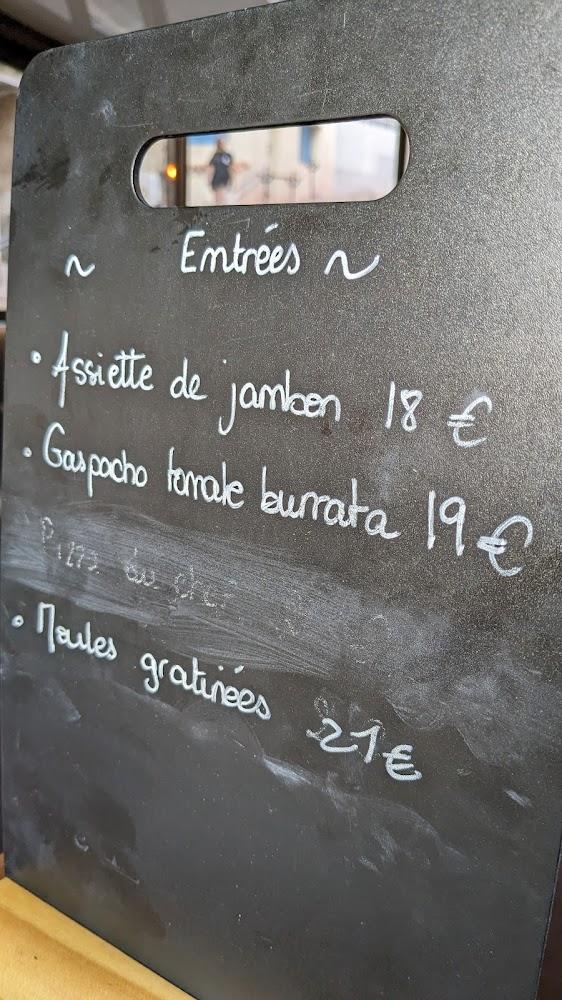 ~ Entrées ~
• Assiette de jambon 18 €
• Gaspacho tomate burrata 19 €
• Moules gratinées 21 €